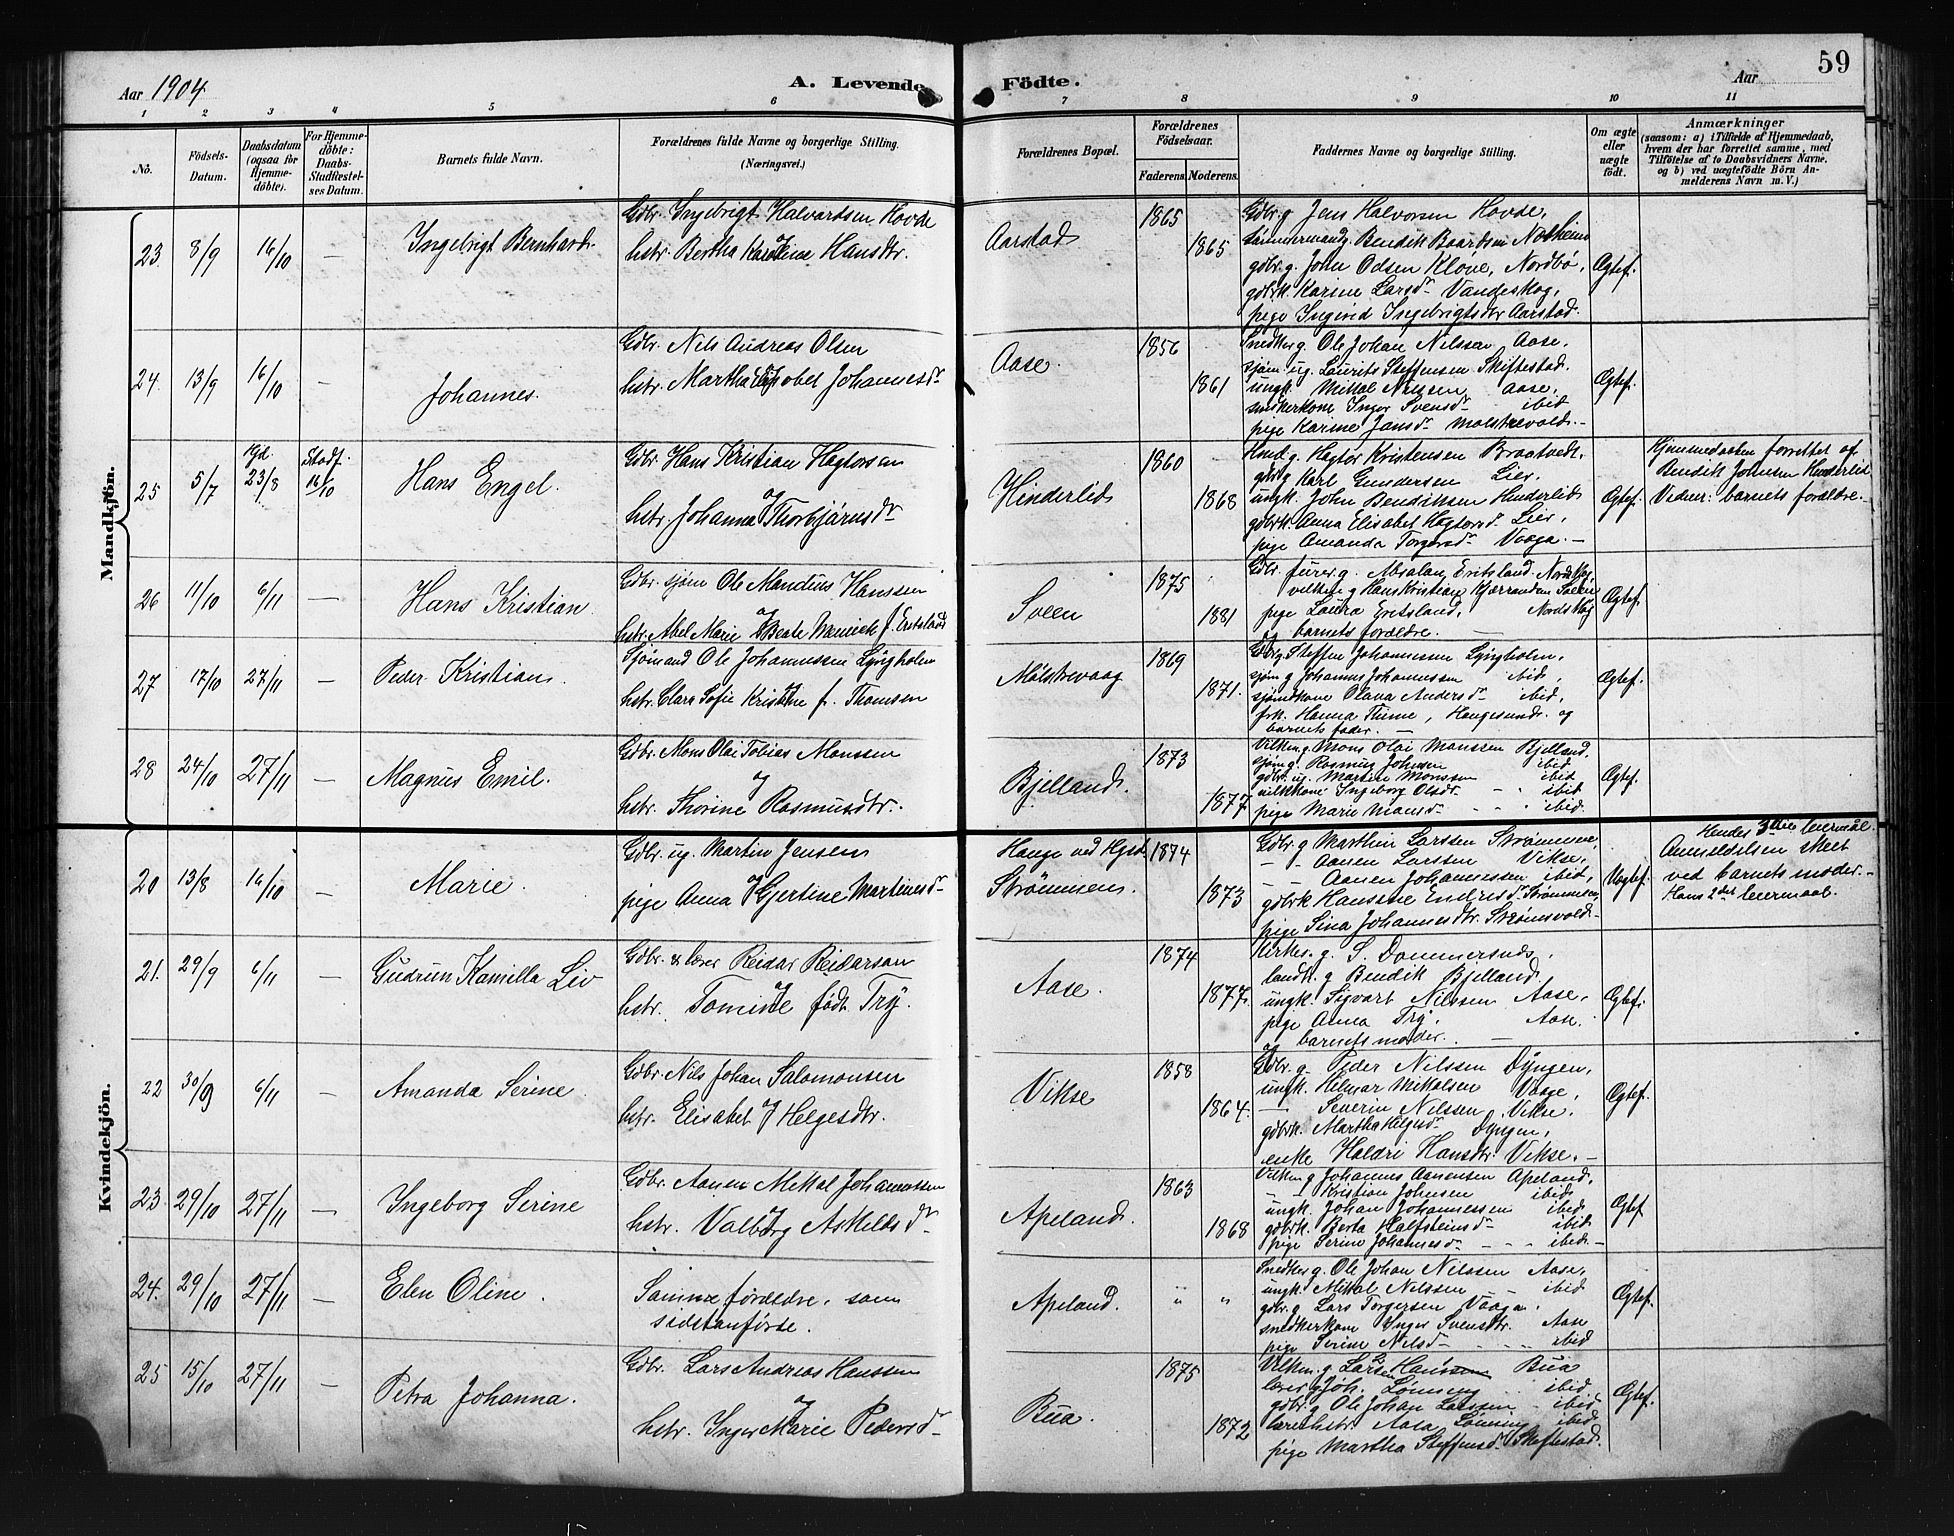 Aar 1904.
A. Levende Födte.
Aar
59
1 2 3 4 5 6 7 8 9 10 11
No.
Födsels-
Datum.
Daabsdatum
(ogsaa for
Hjemme-
döbte).
For Hjemme-
döbte:
Daabs-
Stadfæstel-
ses Datum.
Barnets fulde Navn.
Forældrenes fulde Navne og borgerlige Stilling.
(Næringsvei.)
Forældrenes Bopæl.
Forældrenes
Födselsaar.
Faderens. Moderens.
Faddernes Navne og borgerlige Stilling.
Om ægte
eller
uægte
födt.
Anmærkninger
(saasom: a) i Tilfælde af Hjemmedaab,
hvem der har forrettet samme, med
Tilföielse af to Daabsvidners Navne,
og b) ved uægtefödte Börn An-
melderens Navn m. V.)
Mandkjön.
23. 8/9 16/10 —
Ingebrigt Bernhard.
Gdbr. Ingebrigt Halvardsen Hovde
og
hstr. Bertha Karoline Hansdtr.
Aarstad
1865
1865
Gdbr. g. Jens Halvorsen Hovde,
tømmermand g. Bendik Baardsen Notheim
gdbr. g. John Odsen Kløve, Nordbø,
gdbrk. Karine Larsdr Vandeskog,
pige Ingerid Ingebrigtsdtr Aarstad.
Ægtef.
24. 13/9 16/10 —
Johannes.
Gdbr. Nils Andreas Olsen
og
hstr. Martha Lisabet Johannesdr
Aase.
1856
1861
Snedker g. Ole Johan Nilssen Aase,
sjøm. ug. Laurits Steffensen Skiftestad.
ungk. Mikkal Nilssen Aase,
snedkerkone Inger Svensdr ibid
pige Karine Jansdr Molstrevold. —
Ægtef.
25 5/7 Hjd. 23/8 Stadf. 16/10
Hans Engel.
Gdbr. Hans Kristian Hagtorsen
og
hstr. Johanna Thorbjørnsdr
Hinderlid
1860
1868
Hmd. g. Hagtor Kristensen Braatvedt,
gdbr. g Karl Gundersen Lier,
ungk. John Bendiksen Hinderlid
gdbrk. Anna Elisabet Hagtorsd. Lier,
pige Amanda Torgersdr Vaaga. —
Ægtef.
Hjemmedaaben forrettet af
Bendik Johnsen Hinderlid
Vidner: barnets forældre. —
26 11/10 6/11 —
Hans Kristian.
Gdbr. sjøm Ole Mandius Hanssen
og
hstr. Abel Marie Beate f. Eritsland
Sveen
1875
1881
Gdbr. furer. g. Abraham Eritsland. Nordskog
velkm. g Hans Kristian Sveen
pige Laura Eritsland, Nordskog
og barnets forældre. —
Ægtef.
27 17/10 27/11 —
Peder Kristian.
Sjømand Ole Johannessen Lyngholm
og
hstr. Clara Sofie Kristine f. Thomsen
Molstrevaag
1869
1871.
Gdbr g. Steffen Johannessen Lyngholm,
sjøm g Johannes Johannessen ibid,
sjømdkone Olava Andersdr ibid,
frk. Hanna Thime, Haugesund. og
barnets fader. —
Ægtef.
28 24/10 27/11 —
Magnus Emil.
Gdbr. Mons Olai Tobias Monssen
og
hstr. Thorine Rasmusdtr.
Bjelland.
1873
1877
Vilkm. g. Mons Olai Monssen Bjelland,
sjøm g. Rasmus Johnsen ibid
gdbr. ug. Martin Monssen ibid
vilkkone Ingeborg Olsdtr. - - ibid
pige Marie Monsdr - - - ibid.
Ægtef.
Kvindekjön.
20 13/8 16/10 —
Marie.
Gdbr. ug. Martin Jensen
og
pige Anna Gjertine Martinesdr
Hauge ved Hjd.
Strømmen.
1874
1873
Gdbr. g Marthin Larssen Strømmene,
- - Aanen Larssen Vikse,
- - Aanen Johannessen ibid,
gdbrk Hansine Endresdr Strømmen,
pige Sina Johannesdtr. Strømsvold. -
Uægtef.
Hendes 3die leiermål.
Anmeldelsen skeet
ved barnets moder. -
Hans 2det leiermaal.
21. 29/9 6/11 —
Gudrun Kamilla Liv
Gdbr. & lærer Reidar Reidarson
og
hstr. Tomine født Try.
Aase.
1874
1877.
Kirkes. g. S. Dommersnes,
landh. g Bendik Bjelland.
ungk. Sigvart Nilssen Aase,
pige Anna Try, Aase.
og barnets moder. —
Ægtef.
22 30/9 6/11 —
Amanda Serine.
Gdbr. Nils Johan Salomonsen
og
hstr. Elisabet Helgesdtr.
Vikse
1858
1864.
Gdbr. g. Peder Nilssen Dyngen,
ungk. Helmar Mikalsen Vaage,
— Severin Nilssen Vikse.
gdbrk. Martha Helgesdr Dyngen,
enke Haldri Hansdtr. Vikse. —
Ægtef.
23 29/10 27/11 —
Ingeborg Serine
Gdbr. Aanen Mikal Johannessen
og
hstr. Valborg Askeldsdr
Apeland.
1863
1868
Vilkm. g Johannes Aanensen Apeland,
- - Kristian Johnsen ibid.
ungk. Johan Johannessen ibid
gdbrk. Berta Halfsteinsdr ibid
pige Serine Johannesdr - - - ibid. -
Ægtef
24. 29/10 27/11 —
Elen Oline.
Samme forældre, som
sidstanførte.
Apeland.
" "
Snedker g. Ole Johan Nilssen Aase,
ungk. Mikkal Nilssen - ibid
gdbr. g Lars Torgersen Vaaga,
snedkerkone Inger Svensdtr. Aase
pige Serine Nilsdr - - - - ibid
Ægtef.
25 15/10 27/11 —
Petra Johanna.
Gdbr. Lars Andreas Hanssen
og
hstr. Inger Marie Pedersdr
Bua.
1875
1872
Vilkm. g. Lars Hanssen Bua
lærer g Joh. Lønning - - ibid.
gdbr. g Ole Johan Larssen - ibid.
lærerhstr. Aasa Lønning ibid
pige Martha Steffensdr Skiftestad.
Ægtef.